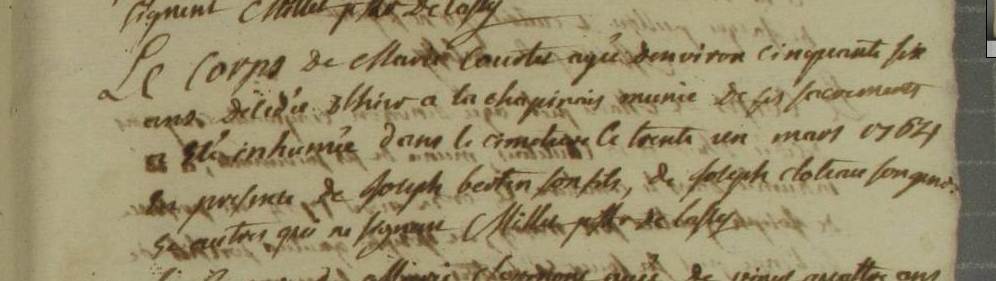 signent Millet ptre de Lassy
Le Corps de Marie Coudée agée denviron cinquante six
ans, décédée d'hier a la chapinais munie de ses sacrements
a été inhumée dans le cimetiere le trente un mars 1764
En presence de Joseph bertin son fils, de Joseph cloteau son gend:
Et autres qui ne signent Millet ptre de Lassy
Marie agée de vingt quattre ans